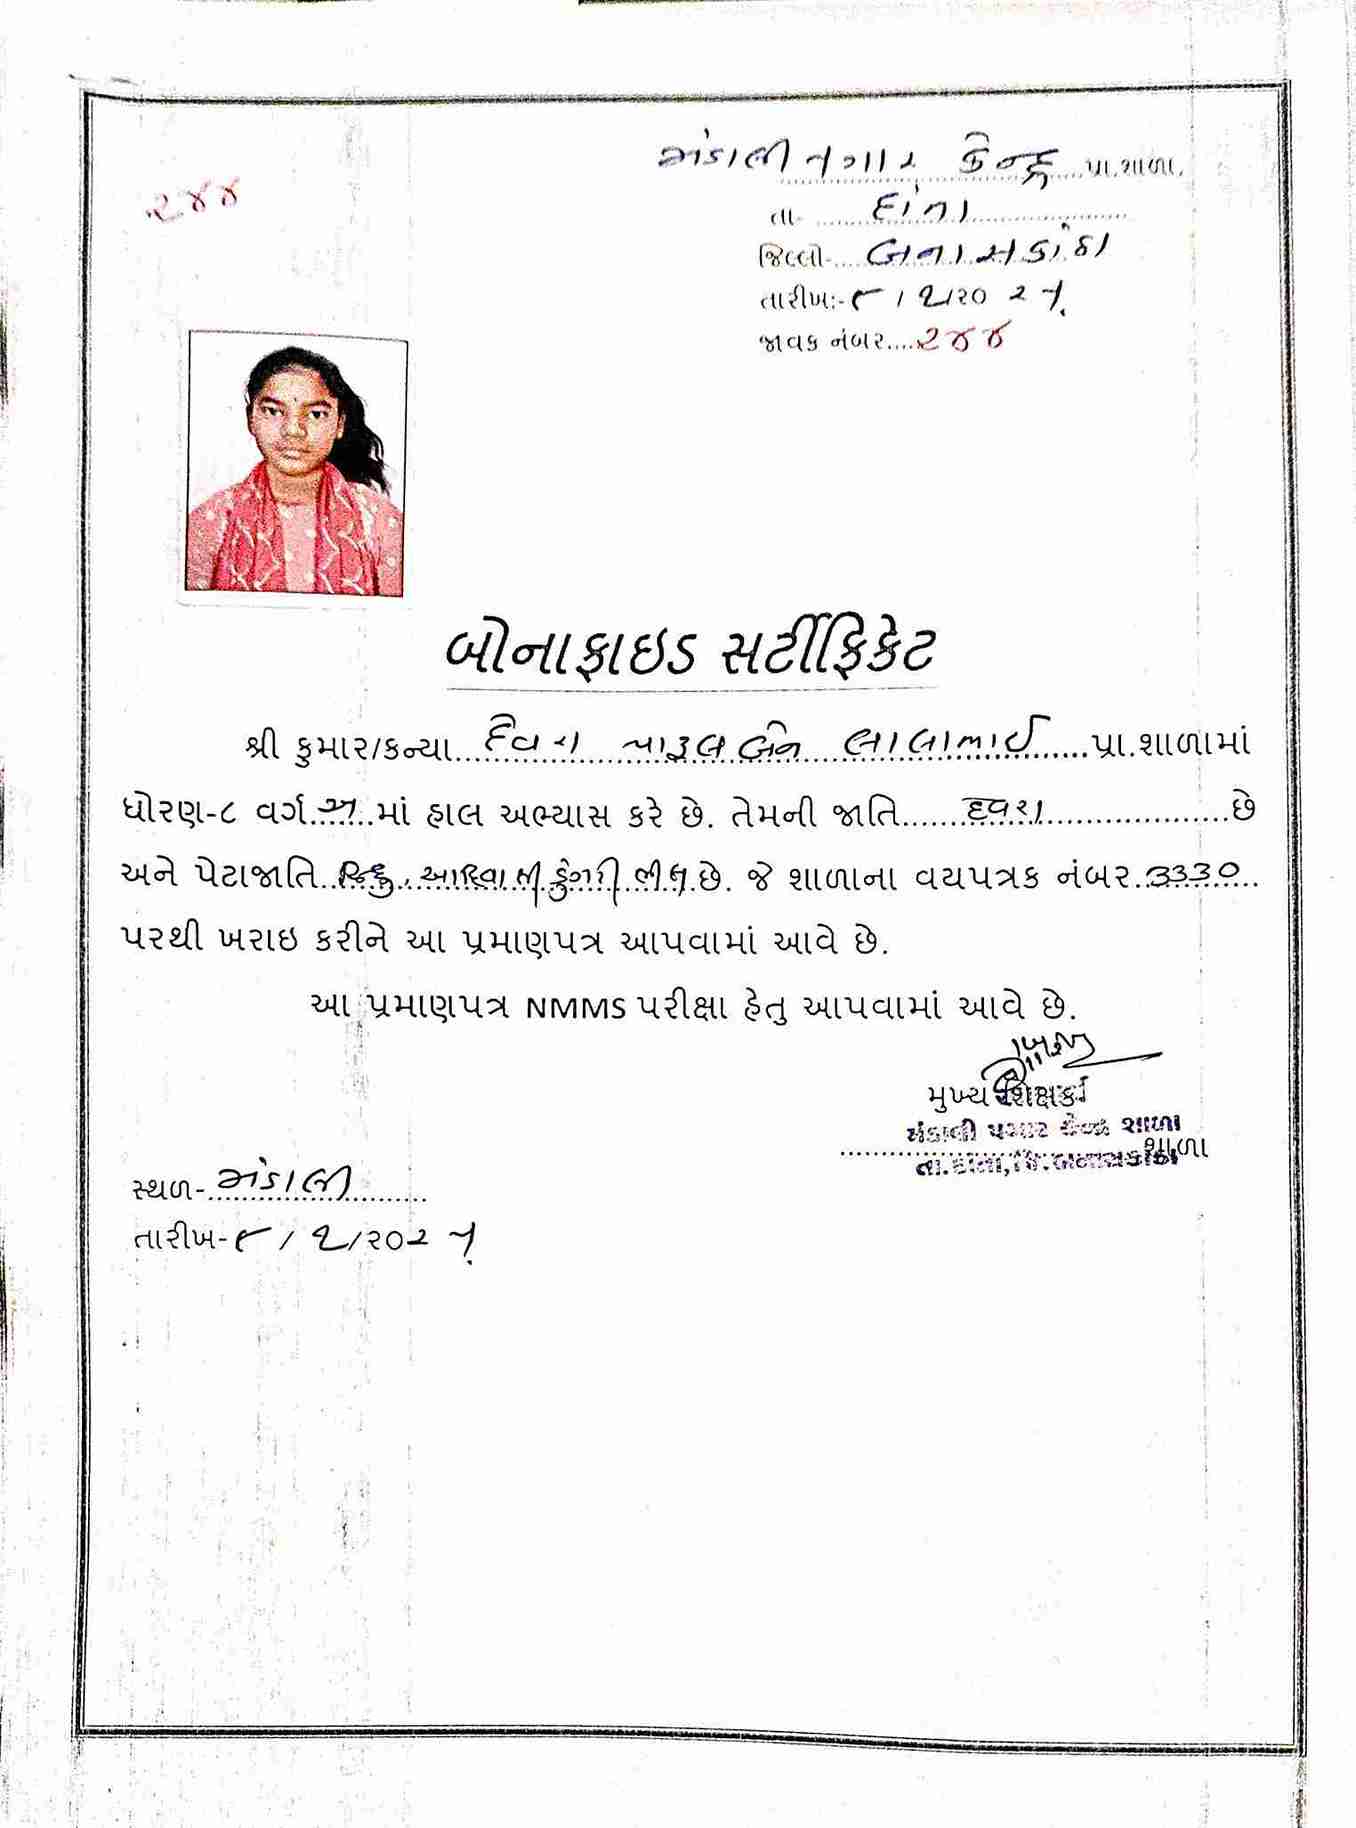 ૨૪૪
મંડાલી પગાર કેન્દ્ર પ્રા.શાળા.
તા- દાંતા
જિલ્લો- બનાસકાંઠા
તારીખ:- ૯/૧/૨૦૨૫
જાવક નંબર....૨૪૪
બોનાફાઇડ સર્ટીફિકેટ
શ્રી કુમાર/કન્યા પારૂલબેન લાલાભાઈ પ્રા.શાળામાં
ધોરણ-૮ વર્ગ અ માં હાલ અભ્યાસ કરે છે. તેમની જાતિ છે
અને પેટાજાતિ હિન્દુ, ડુંગરી ભીલ છે. જે શાળાના વયપત્રક નંબર 3330
પરથી ખરાઇ કરીને આ પ્રમાણપત્ર આપવામાં આવે છે.
આ પ્રમાણપત્ર NMMS પરીક્ષા હેતુ આપવામાં આવે છે.
મુખ્ય શિક્ષક
મંડાલી પગાર કેન્દ્ર શાળા
શાળા
તા.દાંતા,જિ.બનાસકાંઠા
સ્થળ- મંડાલી
તારીખ- ૯/૧/૨૦૨૫